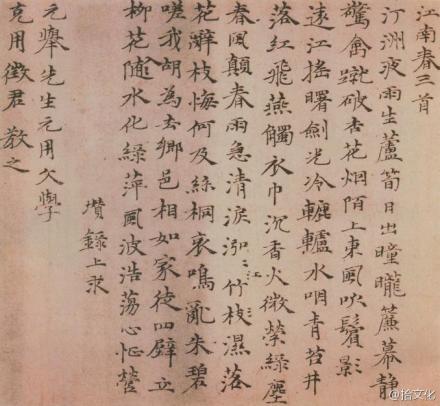 江南春三首
汀洲夜雨生蘆筍日出曈曨簾幕靜
驚禽蹴破杏花烟陌上東風吹鬢影
遠江搖曙劍光冷轆轤水咽青苔井
落紅飛燕觸衣巾沉香火微縈綠塵
春風顛春雨急清淚泓〻江竹枝濕落
花辭枝悔何及絲桐哀鳴亂朱碧
嗟我胡為去鄉邑相如家徒四壁立
柳花隨水化綠萍風波浩蕩心怔營
瓚錄上求
元舉先生元用文學
克用徵君 教之
@拾文化